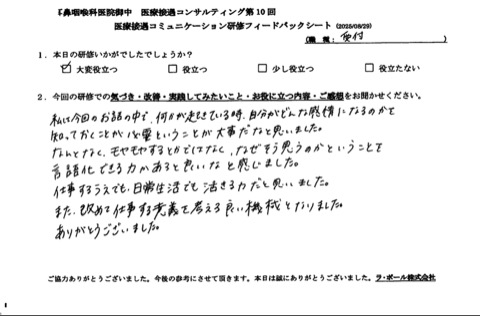 『鼻咽喉科医院御中 医療接遇コンサルティング第10回
医療接遇コミュニケーション研修フィードバックシート (2025/08/29)
(職種: 受付 )
1. 本日の研修いかがでしたでしょうか?
☑大変役立つ □役立つ □少し役立つ □役立たない
2. 今回の研修での気づき・改善・実践してみたいこと・お役に立つ内容・ご感想をお聞かせください。
私は今回のお話の中で、何かが起きている時、自分がどんな感情になるのかを
知っておくことが必要ということが大事だなと思いました。
なんとなく、モヤモヤするとかではなく、なぜそう思うのかということを
言語化できる力があると良いなと感じました。
仕事するうえでも、日常生活でも活きる力だと思いました。
また、改めて仕事する意義を考える良い機械となりました。
ありがとうございました。
ご協力ありがとうございました。今後の参考にさせて頂きます。本日は誠にありがとうございました。ラ・ポール株式会社